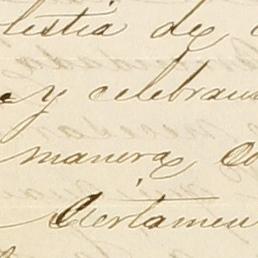 lestia de
y celebran
manera, Co
Certamen